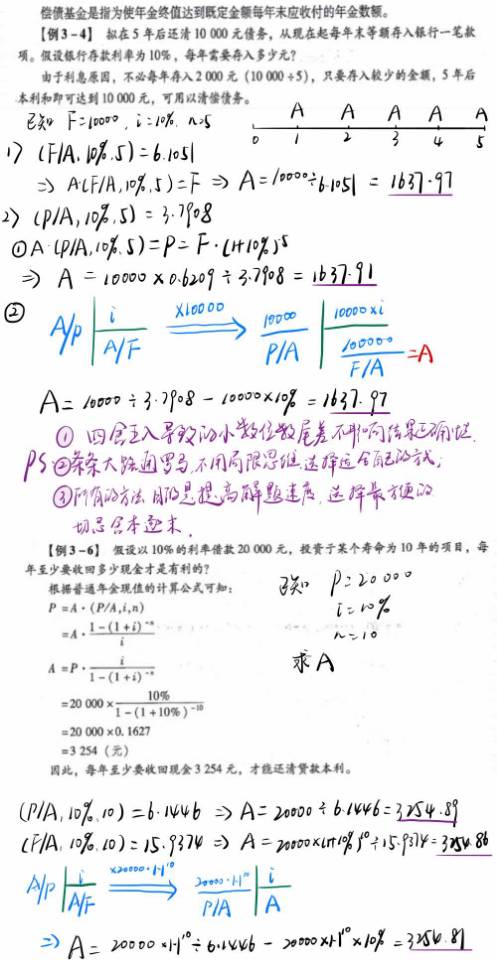 偿债基金是指为使年金终值达到既定金额每年末应收付的年金数额。
【例3-4】 拟在5年后还清10 000元债务，从现在起每年末等额存入银行一笔款
项。假设银行存款利率为10%，每年需要存入多少元？
由于利息原因，不必每年存入2 000元（10 000÷5），只要存入较少的金额，5年后
本利和即可达到10 000元，可用以清偿债务。
已知 F=10000，i=10%，n=5
A A A A A
0 1 2 3 4 5
1) (F/A, 10%, 5)=6.1051
⇒ A·(F/A, 10%, 5)=F ⇒ A=10000÷6.1051 = 1637.97
2) (P/A, 10%, 5) = 3.7908
① A·(P/A, 10%, 5)=P=F·(1+10%)^5
⇒ A = 10000 × 0.6209 ÷ 3.7908 = 1637.91
② A/P | i / A/F ×10000 ⇒ 10000 / P/A | 10000×i / 100000 / F/A =A
A= 10000÷3.7908 - 10000×10% = 1637.97
① 四舍五入导致的小数位数尾差不影响结果正确性.
PS ②条条大路通罗马,不用局限思维,选择适合自己的方式;
③所有的方法,目的是提高解题速度,选择最方便的
切忌舍本逐末.
【例3-6】 假设以10%的利率借款20 000元，投资于某个寿命为10年的项目，每
年至少要收回多少现金才是有利的？
根据普通年金现值的计算公式可知：
已知 P=20000
i=10%
n=10
求A
P =A·(P/A,i,n)
=A·\frac{1-(1+i)^{-n}}{i}
A =P·\frac{i}{1-(1+i)^{-n}}
=20 000×\frac{10%}{1-(1+10%)^{-10}}
=20 000×0.1627
=3 254（元）
因此，每年至少要收回现金3 254元，才能还清贷款本利。
(P/A, 10%, 10)=6.1446 ⇒ A=20000÷6.1446=3254.89
(F/A, 10%, 10)=15.9374 ⇒ A=20000×(1+10%)^10÷15.9374=3254.86
A/P | i / A/F ×20000·1.1^10 ⇒ 20000·1.1^10 / P/A | i / A
⇒ A= 20000×1.1^10÷6.1446 - 20000×1.1^10×10% =3254.81